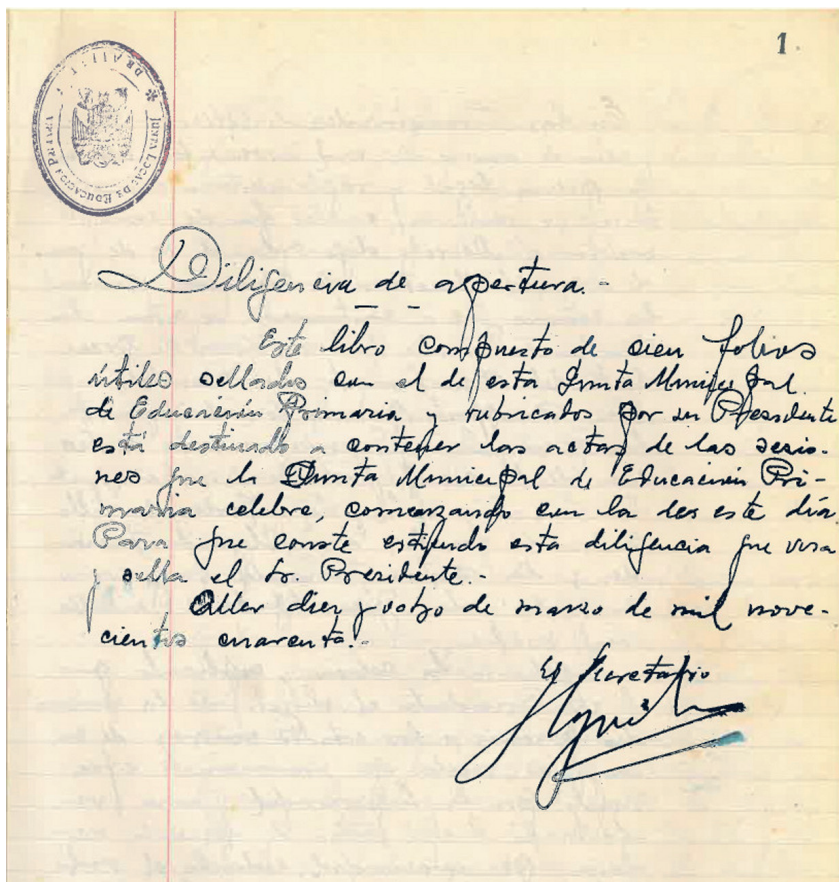 1.
JUNTA LOCAL DE EDUCACION PRIMARIA
Diligencia de apertura.-
Este libro compuesto de cien folios
útiles sellados con el de esta Junta Municipal
de Educación Primaria y rubricados por su Presidente
está destinado a contener las actas de las sesio-
nes que la Junta Municipal de Educación Pri-
maria celebre, comenzando con la de este día
Para que conste extiendo esta diligencia que visa
y sella el Sr. Presidente.-
Aller diez y ocho de marzo de mil nove-
cientos cuarenta.-
El Secretario